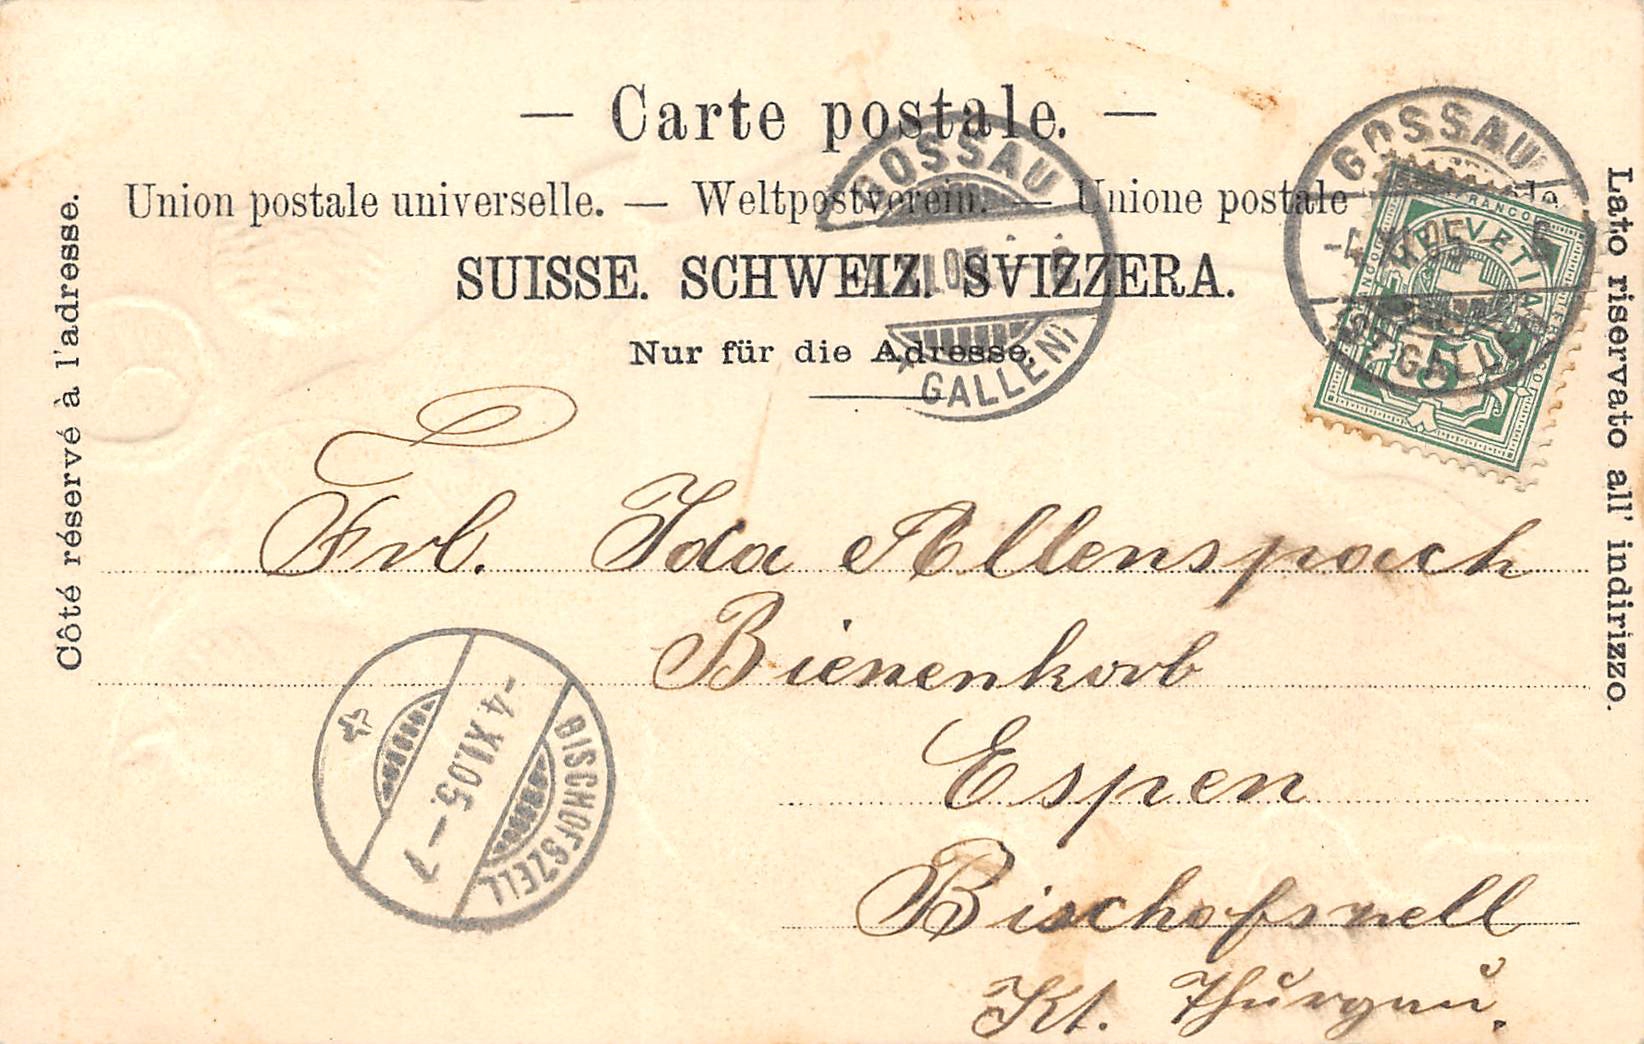 — Carte postale. —
Union postale universelle. — Weltpostverein. — Unione postale
SUISSE. SCHWEIZ. SVIZZERA.
Nur für die Adresse.
Côté réservé à l'adresse.
Lato riservato all' indirizzo.
GOSSAU
XI.05.
GALLEN
GOSSAU
ST. GALLEN
FRANCO
HELVETIA
5
Frl. Ida Allenspach
Bienenkorb
Espen
Bischofszell
Kt. Thurgau.
BISCHOFSZELL
-4.XI.05.-7